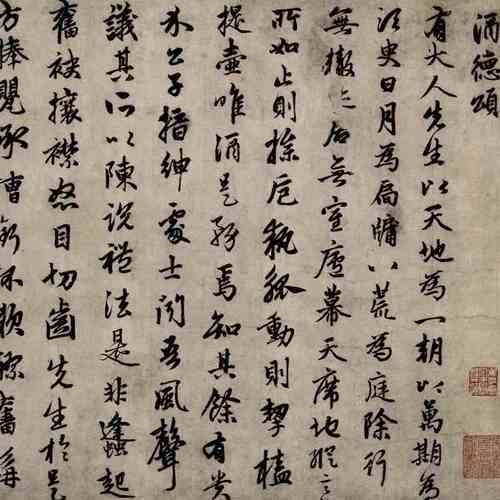 酒德頌
有大人先生以天地為一朝以萬期為
須臾日月為扃牖八荒為庭除行
無轍迹居無室廬幕天席地縱意
所如止則操卮執觚動則挈榼
提壺唯酒是務焉知其餘有貴
介公子搢紳處士聞吾風聲
議其所以陳說禮法是非蠭起
奮袂攘襟怒目切齒先生於是
方捧甖承槽銜杯漱醪奮髯